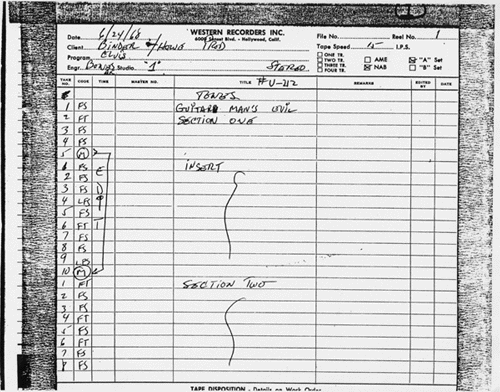 WESTERN RECORDERS INC.
6000 Sunset Blvd. - Hollywood, Calif.
Date 6/24/68 File No. Reel No. 1
Client BINDER / HOWE PROD Tape Speed 15 I.P.S.
Program ELVIS
Engr. Studio "1" STEREO
ONE TR.
TWO TR. AME "A" Set
THREE TR. NAB "B" Set
FOUR TR.
#U-212
TAKE NO. CODE TIME MASTER NO. TITLE REMARKS EDITED BY DATE
TONES
1 FS GUITAR MAN'S EVIL
2 FT SECTION ONE
3 FS
4 FS
5 M
1 FS INSERT
2 FS
3 FS
4 LFS
5 FS
6 FT
7 FS
8 FS
9 LFS
10 M
EDIT
1 FT SECTION TWO
2 FS
3 FS
4 FT
5 FS
6 FS
7 FS
8 FS
TAPE DISPOSITION - Details on Work Order